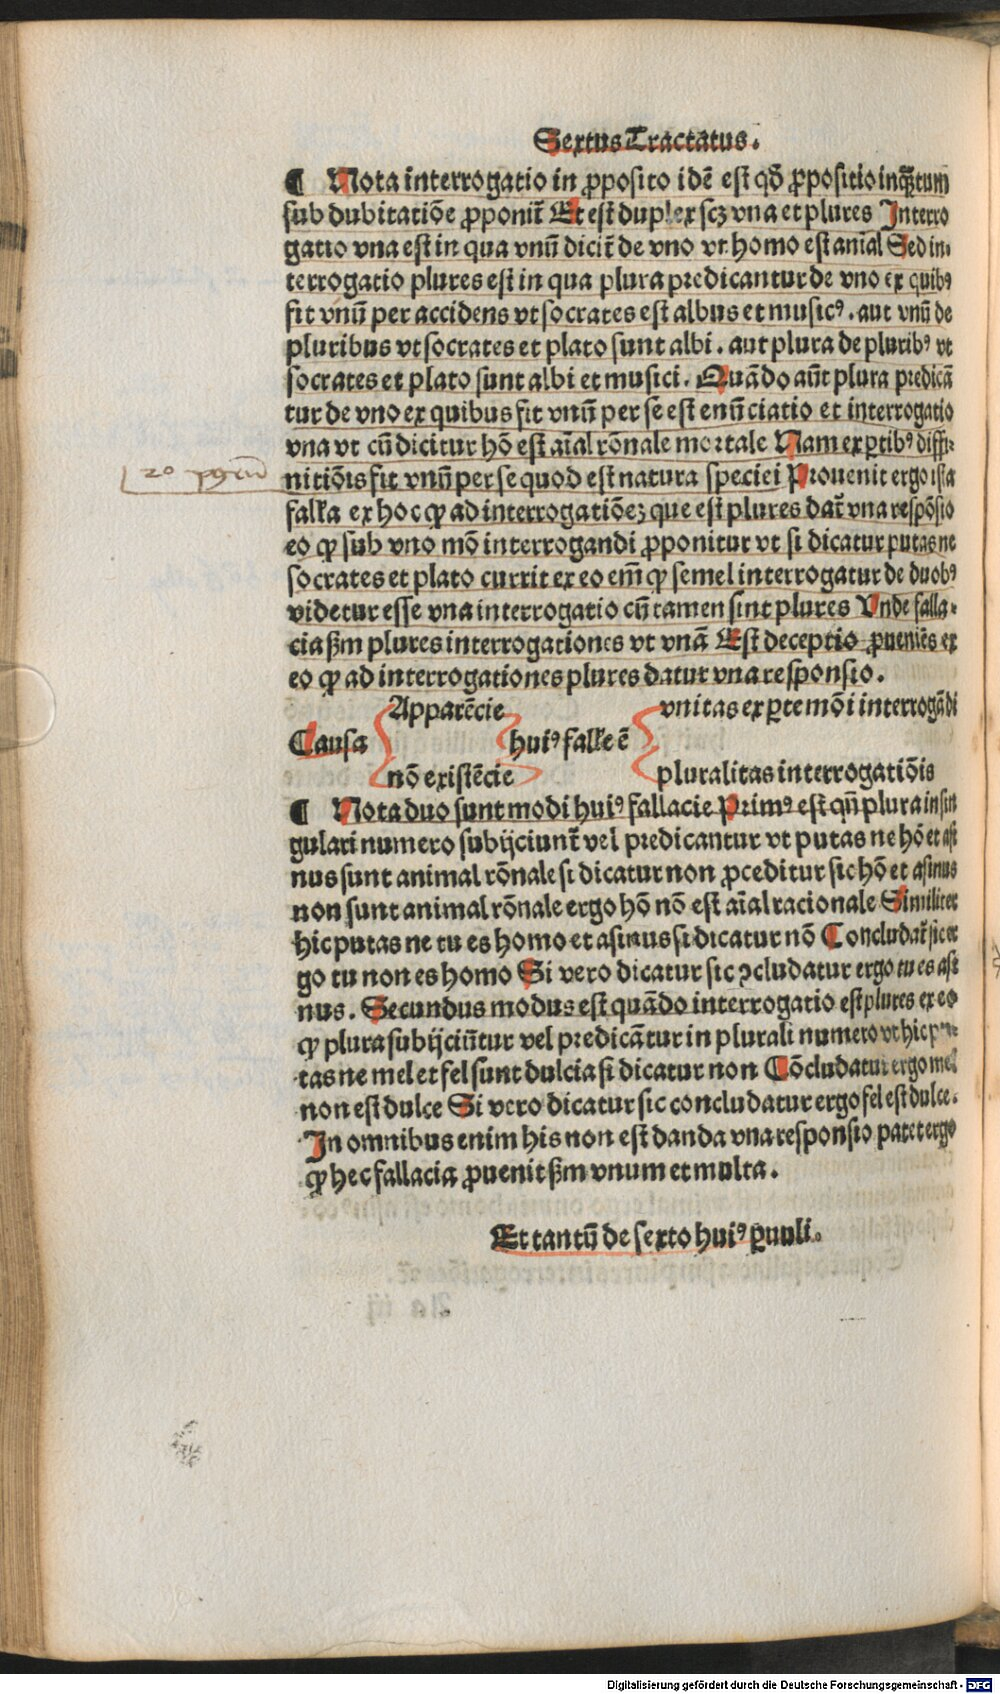 Sextus Tractatus.
¶ Nota interrogatio in ꝓposito idē est qḋ ꝓpositio inqȝtum
sub dubitatiōe ꝓponit̄ Et est duplex scꝫ vna et plures Interro
gatio vna est in qua vnū dicit̄ de vno vt homo est anīal Sed in-
terrogatio plures est in qua plura predicantur de vno ex quibꝰ
fit vnū per accidens vt socrates est albus et musicꝰ. aut vnū de
pluribus vt socrates et plato sunt albi. aut plura de pluribꝰ vt
socrates et plato sunt albi et musici. Quādo aūt plura predicā
tur de vno ex quibus fit vnū per se est enūciatio et interrogatio
vna vt cū dicitur hō est aīal rōnale mortale Nam ex ꝑtibꝰ diffi-
nitiōis fit vnū per se quod est natura speciei Prouenit ergo ista
falła ex hoc ꝙ ad interrogatiōeꝫ que est plures dat̄ vna respōsio
eo ꝙ sub vno mō interrogandi ꝓponitur vt si dicatur putas ne
socrates et plato currit ex eo em̄ ꝙ semel interrogatur de duobꝰ
videtur esse vna interrogatio cū tamen sint plures Vnde falla-
cia ßm plures interrogationes vt vnā Est deceptio ꝓueniēs ex
eo ꝙ ad interrogationes plures datur vna responsio.
Apparēcie
vnitas ex ꝑte mōi interrogādi
Causa
huiꝰ falłe ē
nō existēcie
pluralitas interrogatiōis
¶ Nota duo sunt modi huiꝰ fallacie Primꝰ est qn̄ plura in sin
gulari numero subijciunt̄ vel predicantur vt putas ne hō et asi
nus sunt animal rōnale si dicatur non ꝓceditur sic hō et asinus
non sunt animal rōnale ergo hō nō est aīal racionale Similiter
hic putas ne tu es homo et asinus si dicatur nō Concludat̄ sic er
go tu non es homo Si vero dicatur sic ꝯcludatur ergo tu es asi
nus. Secundus modus est quādo interrogatio est plures ex eo
ꝙ plura subijciūtur vel predicātur in plurali numero vt hic pu-
tas ne mel et fel sunt dulcia si dicatur non Cōcludatur ergo mel
non est dulce Si vero dicatur sic concludatur ergo fel est dulce.
In omnibus enim his non est danda vna responsio patet ergo
ꝙ hec fallacia ꝓuenit ßm vnum et multa.
Et tantū de sexto huiꝰ ꝑuuli.
Digitalisierung gefördert durch die Deutsche Forschungsgemeinschaft - DFG